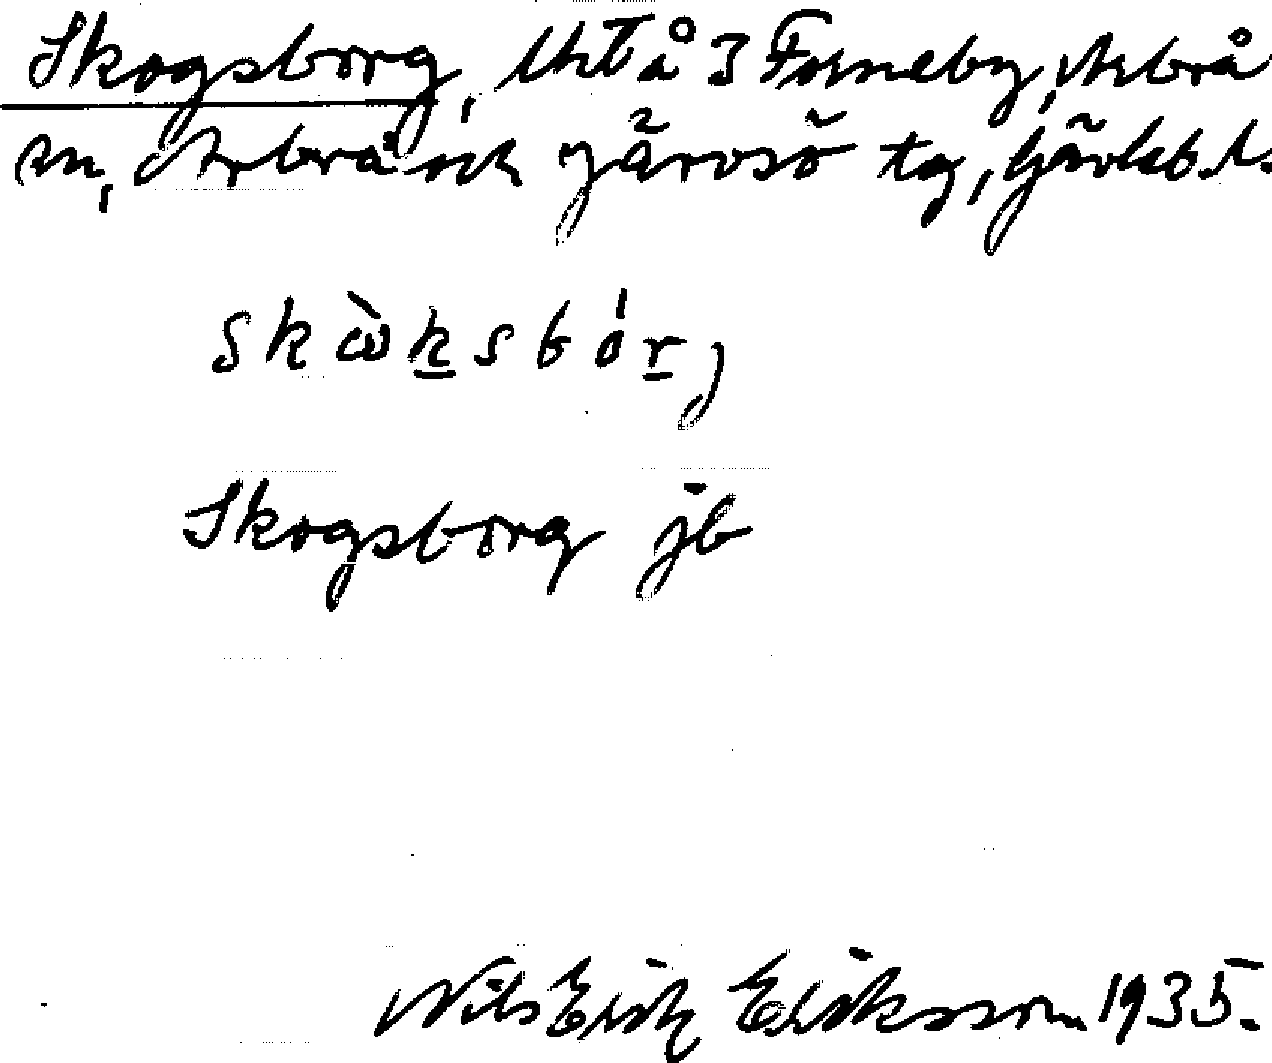 Skogsborg, lht å 3 Forneby, Arbrå
sn, Arbrå och Järvsö tg, Gävleb. l.
skὼksbór,
Skogsborg jb
Nils Erik Eriksson 1935.